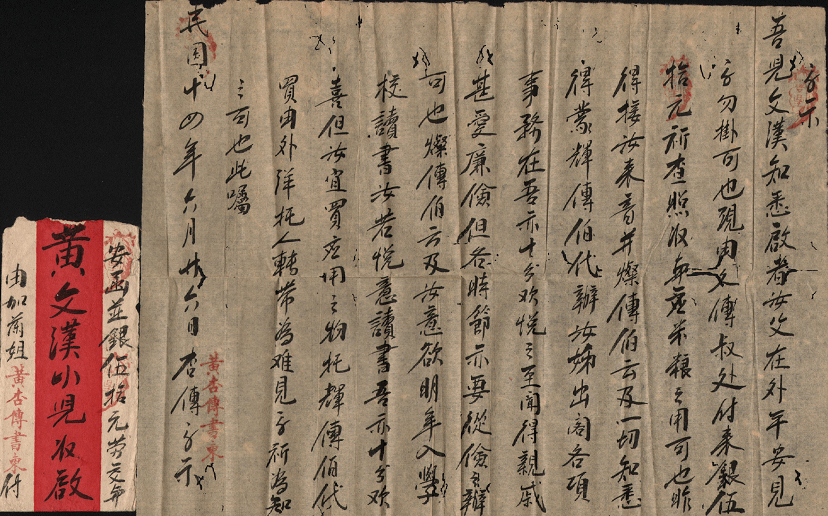 字示
吾兒文漢知悉啟者汝父在外平安見
字勿掛可也現由文傳叔处付来銀伍
拾元祈查照收
家中粮之用可也昨
得接汝来音并燦傳伯云及一切知悉
得蒙輝傳伯代辦汝姊出阁各項
事務在吾亦十分欢悦之至聞得親戚
甚愛廉儉但各時節亦要從儉而辦
可也燦傳伯云及汝意欲明年入學
校讀書汝若悦意讀書吾亦十分欢
喜但汝宜買应用之物托輝傳伯代
買由外洋托人轉带為难見字祈為知
之可也此囑
民國十四年六月廿六日 杏傳字示
黃杏傳書柬
安函並銀伍拾元勞交
黃文漢小兒收啟
由加
姐 黃杏傳書柬付